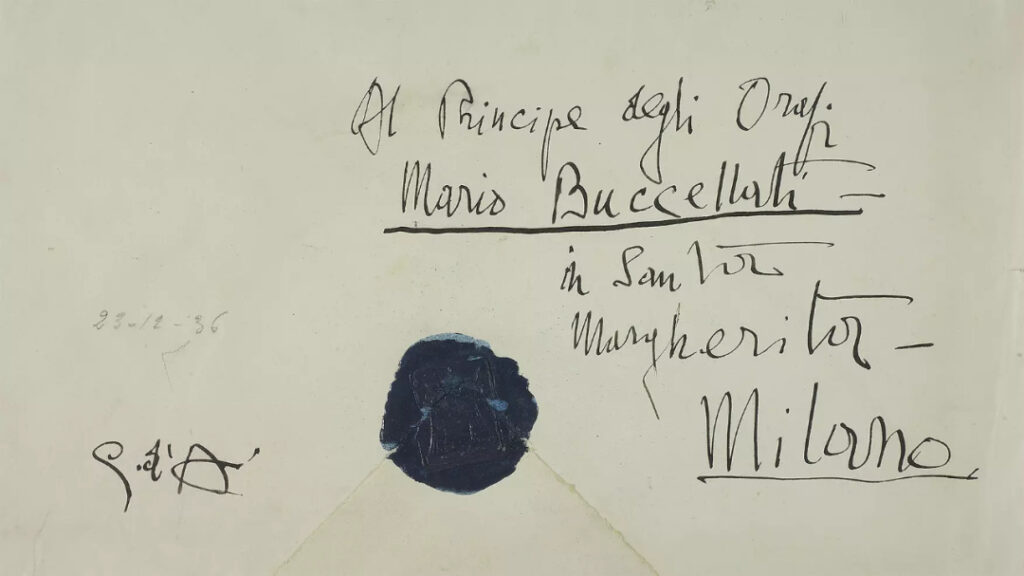 Al Principe degli Orafi
Mario Buccellati —
in Santa
Margherita —
Milano
23-12-36
G. d'A.